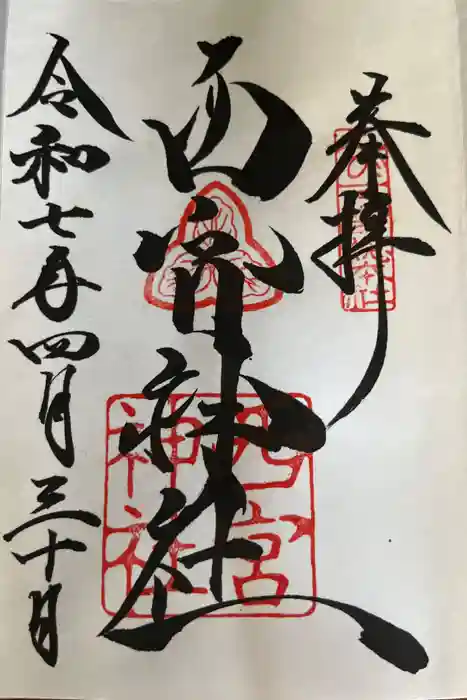 奉拝
西宮神社
西宮神社
令和七年四月三十日